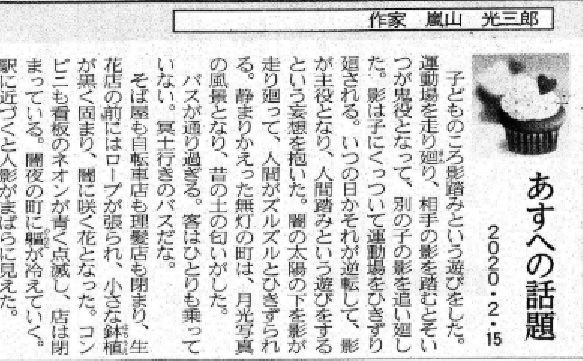 作家 嵐山 光三郎
あすへの話題
2020・2・15
子どものころ影踏みという遊びをした。
運動場を走り廻り、相手の影を踏むとそい
つが鬼役となって、別の子の影を追い廻し
た。影は子にくっついて運動場をひきずり
廻される。いつの日かそれが逆転して、影
が主役となり、人間踏みという遊びをする
という妄想を抱いた。闇の太陽の下を影が
走り廻って、人間がズルズルとひきずられ
る。静まりかえった無灯の町は、月光写真
の風景となり、昔の土の匂いがした。
バスが通り過ぎる。客はひとりも乗って
いない。冥土行きのバスだな。
そば屋も自転車店も理髪店も閉まり、生
花店の前にはロープが張られ、小さな鉢植
が黒く固まり、闇に咲く花となった。コン
ビニも看板のネオンが青く点滅し、店は閉
まっている。闇夜の町に軀が冷えていく。
駅に近づくと人影がまばらに見えた。